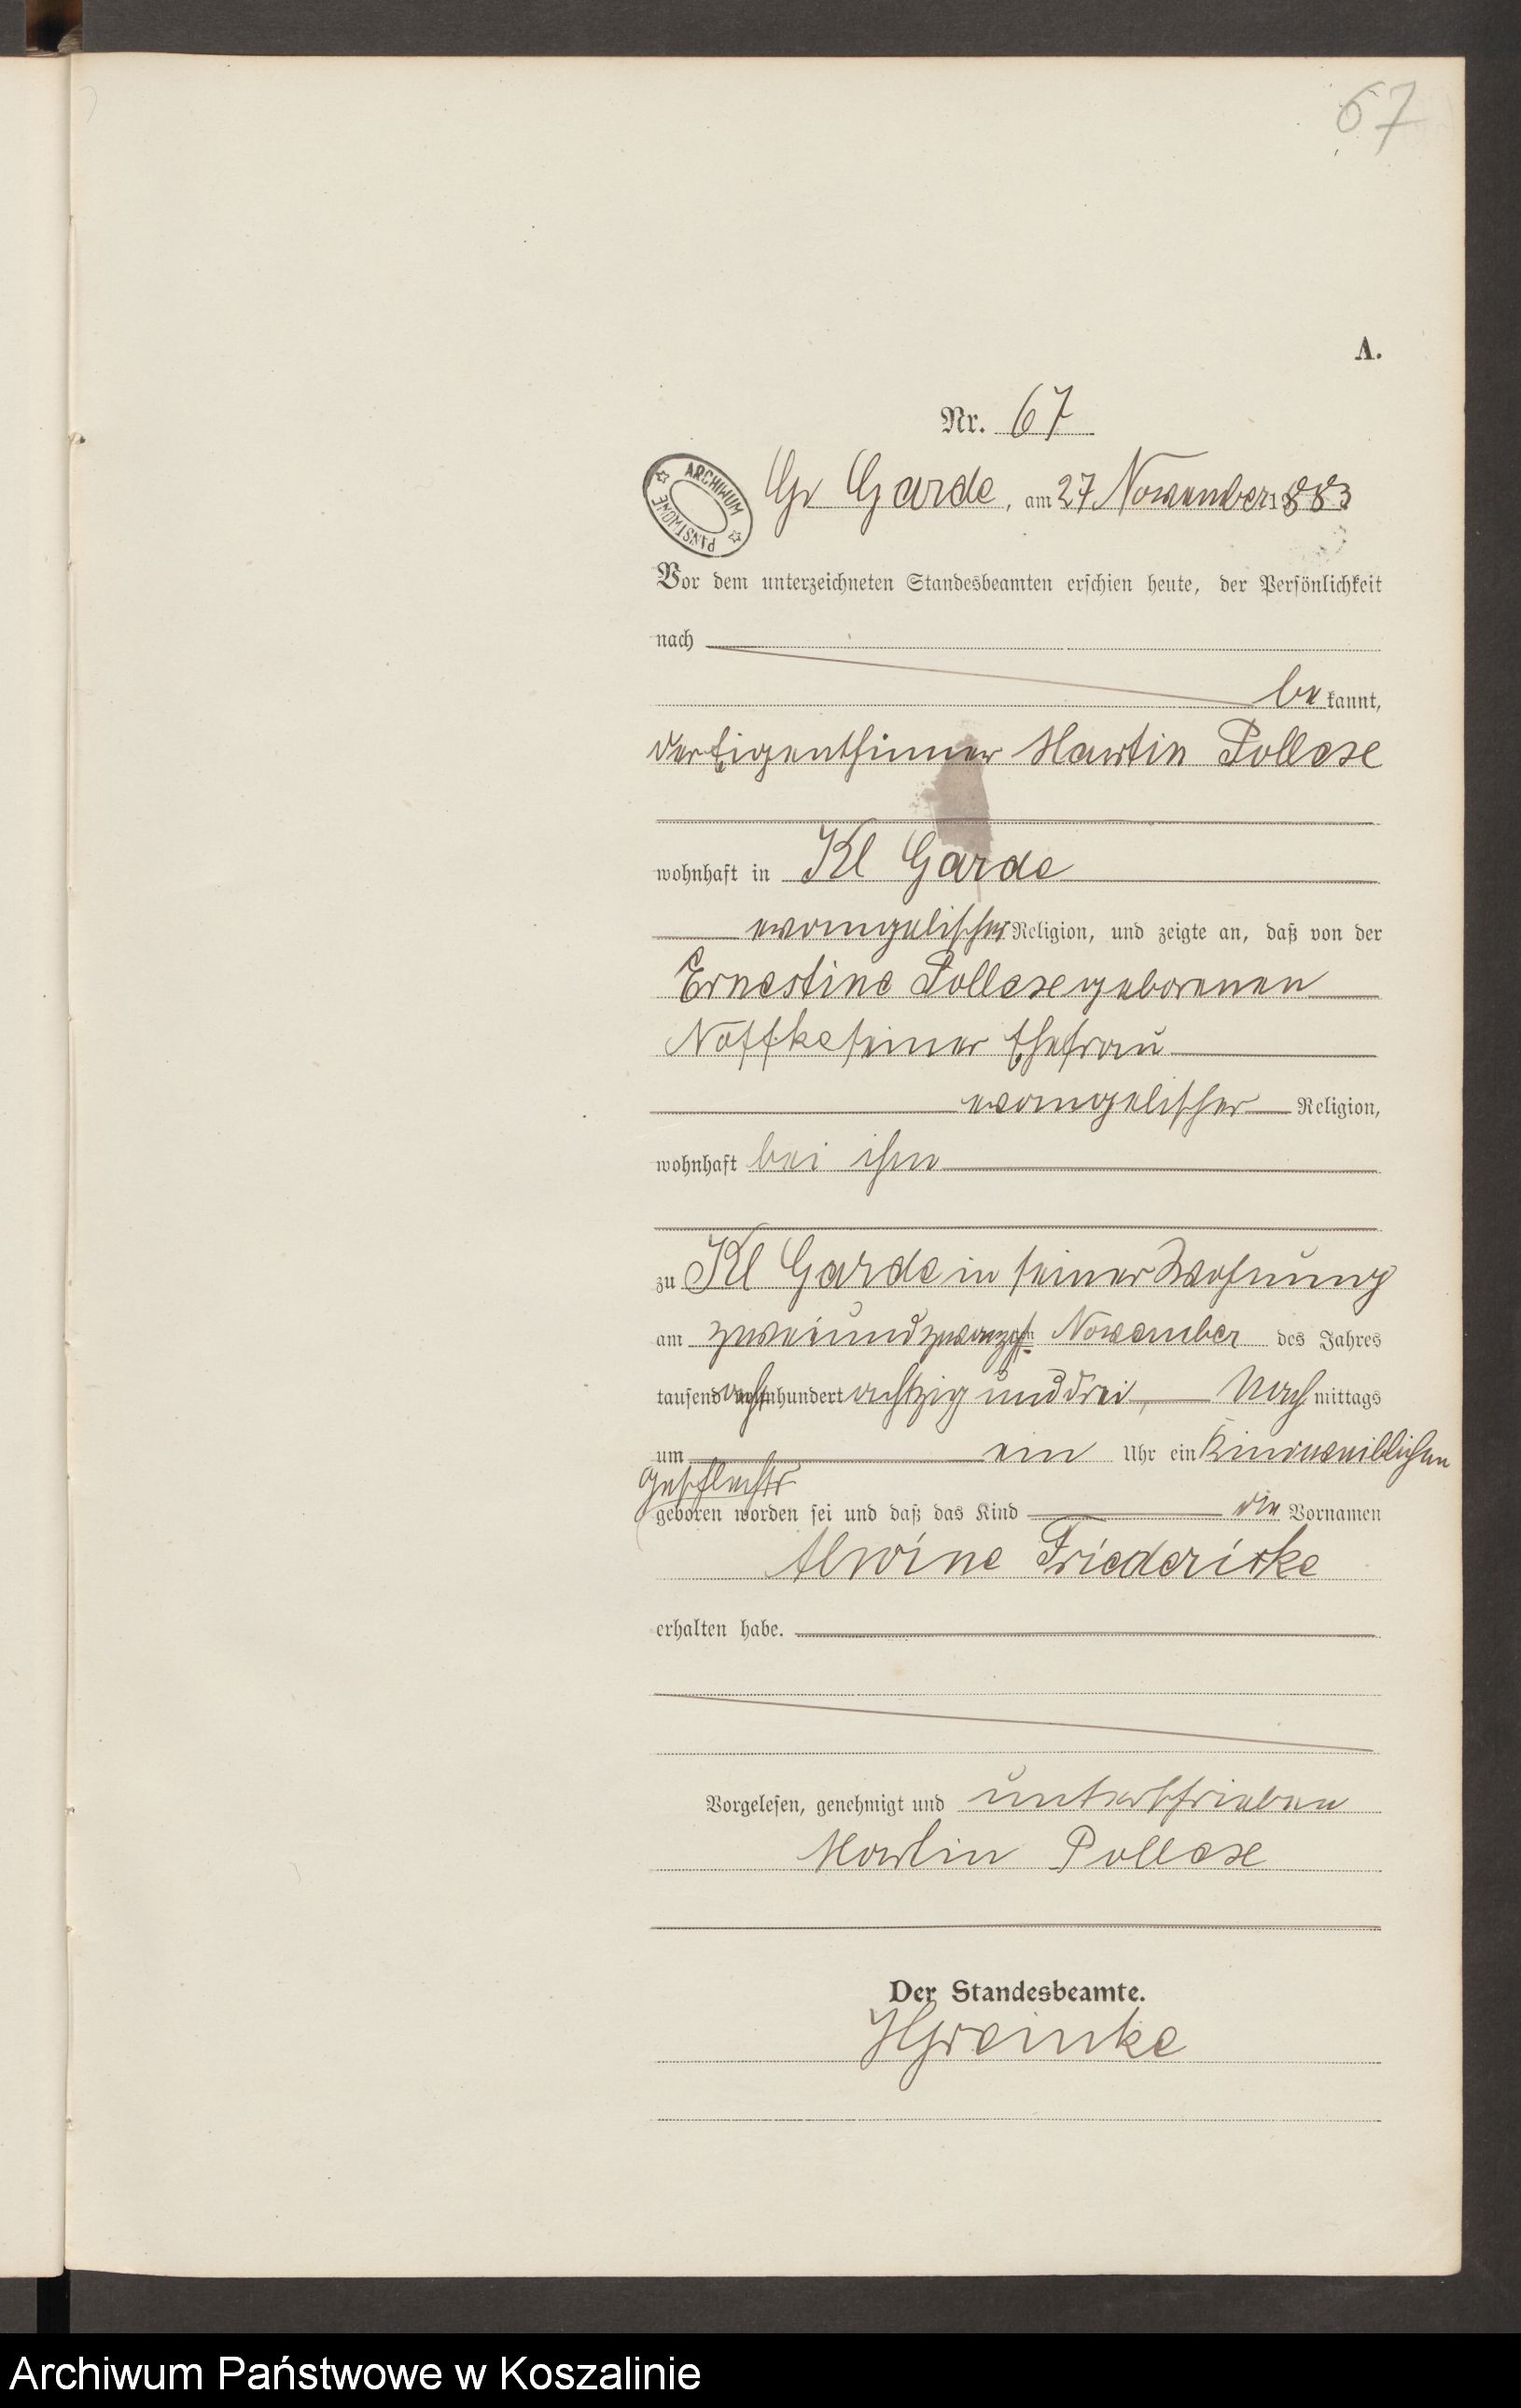 67
A.
Nr. 67
ARCHIWUM PAŃSTWOWE
Gr Garde, am 27 November 1883
Vor dem unterzeichneten Standesbeamten erschien heute, der Persönlichkeit
nach
be kannt,
der Eigenthümer Martin Pollese
wohnhaft in Kl Garde
evangelischer Religion, und zeigte an, daß von der
Ernestine Pollese geborenen
Noffke seiner Ehefrau
evangelischer Religion,
wohnhaft bei ihm
zu Kl Garde in seiner Wohnung
am zweiundzwanzigsten November des Jahres
tausend acht hundert achtzig und drei, Nach mittags
um ein Uhr ein Kind weiblichen
Geschlechts
geboren worden sei und daß das Kind die Vornamen
Alwine Friedericke
erhalten habe.
Vorgelesen, genehmigt und unterschrieben
Martin Pollese
Der Standesbeamte.
Archiwum Państwowe w Koszalinie